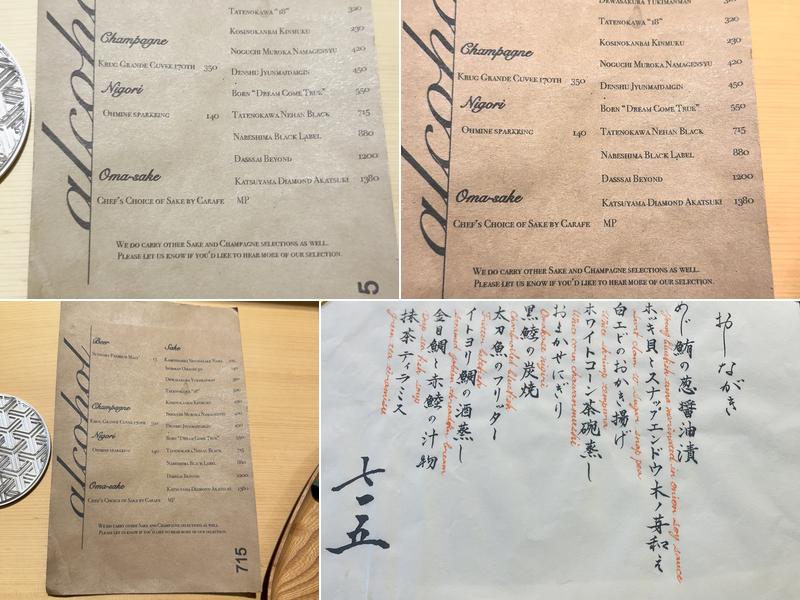 alcohol
Tatenokawa "18" 320
Kosinokanbai Kinmuku 230
Champagne
Noguchi Muroka Namagensyu 420
Krug Grande Cuvee 170th 350
Denshu Jyunmaidaigin 450
Nigori
Born "Dream Come True" 550
Ohmine sparkring 140
Tatenokawa Nehan Black 715
Nabeshima Black Label 880
Dasssai Beyond 1200
Oma-sake
Katsuyama Diamond Akatsuki 1380
Chef's Choice of Sake by Carafe MP
We do carry other Sake and Champagne selections as well.
Please let us know if you'd like to hear more of our selection.
5
alcohol
Dewasakura Yukimanman 320
Tatenokawa "18" 320
Kosinokanbai Kinmuku 230
Champagne
Noguchi Muroka Namagensyu 420
Krug Grande Cuvee 170th 350
Denshu Jyunmaidaigin 450
Nigori
Born "Dream Come True" 550
Ohmine sparkring 140
Tatenokawa Nehan Black 715
Nabeshima Black Label 880
Dasssai Beyond 1200
Oma-sake
Katsuyama Diamond Akatsuki 1380
Chef's Choice of Sake by Carafe MP
We do carry other Sake and Champagne selections as well.
Please let us know if you'd like to hear more of our selection.
alcohol
Beer
Sake
Dewasakura Yukimanman
Tatenokawa "18"
Kosinokanbai Kinmuku
Champagne
Noguchi Muroka Namagensyu
Krug Grande Cuvee 170th 350
Denshu Jyunmaidaigin
Nigori
Born "Dream Come True" 550
Ohmine sparkring 140
Tatenokawa Nehan Black 715
Nabeshima Black Label 880
Dasssai Beyond 1200
Oma-sake
Katsuyama Diamond Akatsuki 1380
Chef's Choice of Sake by Carafe MP
We do carry other Sake and Champagne selections as well.
Please let us know if you'd like to hear more of our selection.
715
おしながき
めじ鮪の葱醤油漬
ホッキ貝とスナップエンドウ木ノ芽和え
白エビのおかき揚げ
ホワイトコーン茶碗蒸し
おまかせにぎり
黒鯥の炭焼
太刀魚のフリッター
イトヨリ鯛の酒蒸し
金目鯛と赤鯥の汁物
抹茶ティラミス
七一五